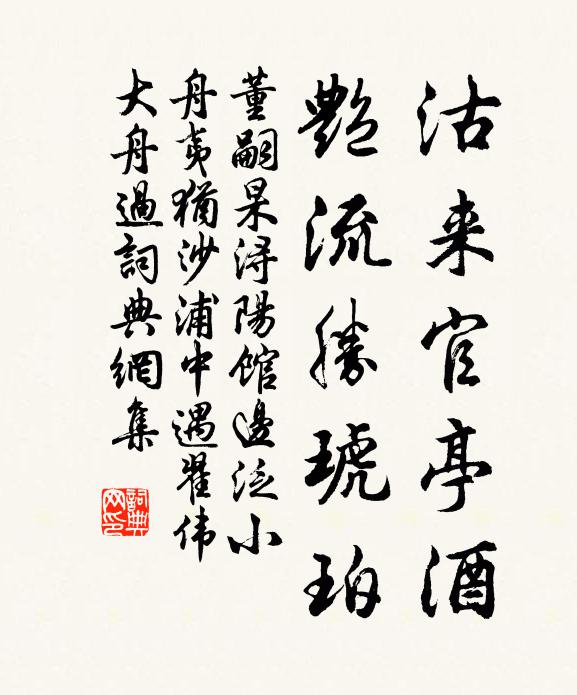 沽来官亭酒
艷流勝琥珀
董嗣杲浔陽館邊泛小
舟夷猶沙浦中遇翟伟
大舟過詞典網集
詞典网印